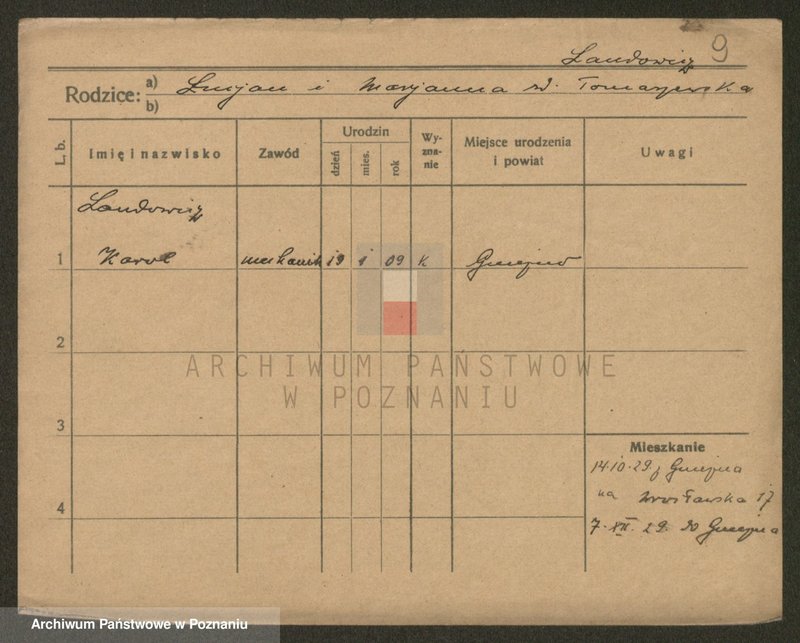 9
Landowicz
Rodzice: a) b) Lucjan i Marjanna zd. Tomaszewska
L. b.
Imię i nazwisko
Zawód
Urodzin
dzień
mies.
rok
Wy-
zna-
nie
Miejsce urodzenia
i powiat
Uwagi
Landowicz
1 Karol mechanik 19 1 09 K Gniezno
2
3
4
Mieszkanie
14 10. 29 z Gniezna
na Wrocławska 17
7. XII. 29. do Gniezna
ARCHIWUM PAŃSTWOWE
W POZNANIU
Archiwum Państwowe w Poznaniu